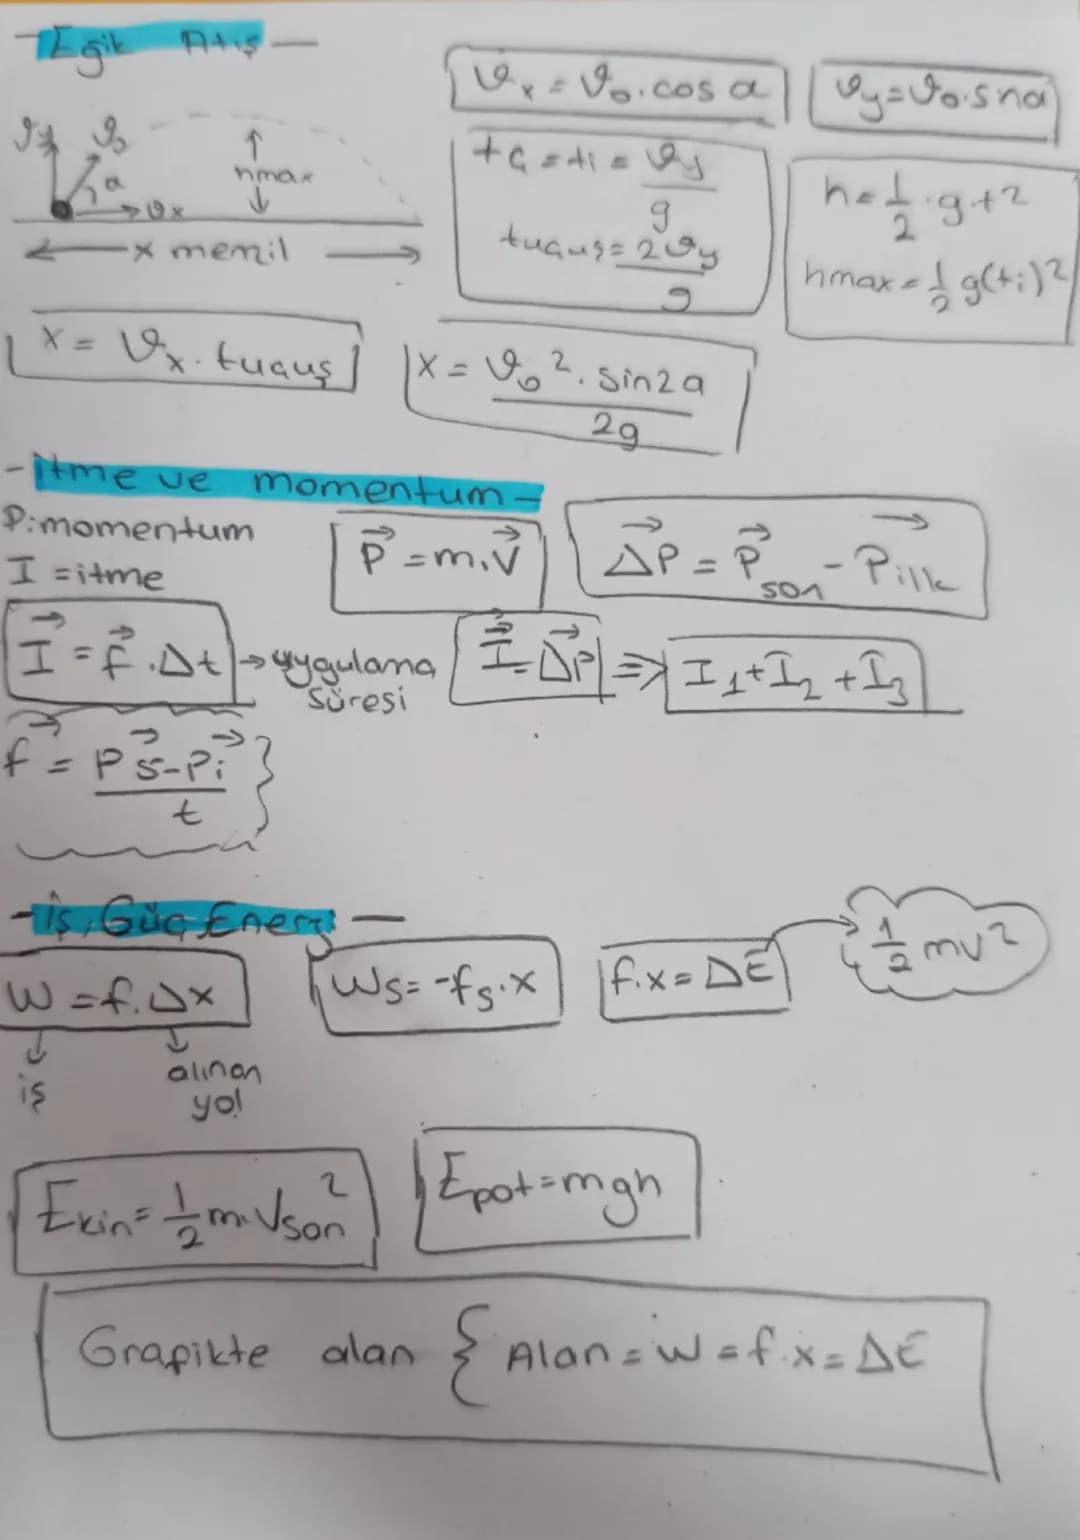 - Eğik Atış -
ϑx = ϑ0.cos a
ϑy=ϑ0.sna
ϑy ϑ0
a
ϑx
hmax
x menzil
tç = ti = ϑy/g
tuçuş = 2ϑy/g
h = 1/2 . gt2
hmax = 1/2 g(ti)2
x = ϑx . tuçuş
x = ϑ0². sin2a / 2g
- itme ve momentum -
P:momentum
I = itme
P = m.V
ΔP = Pson - Pilk
I = f . Δt → uygulama
süresi
I = ΔP ⇒ I1 + I2 + I3
f = Ps - Pi / t
- iş, Güç, Enerji -
W = f. Δx
iş
alınan
yol
Ws = -fs . x
f. x = ΔE
1/2 mv²
Ekin = 1/2 m. Vson²
Epot = mgh
Grafikte alan { Alan = W = f.x = ΔE